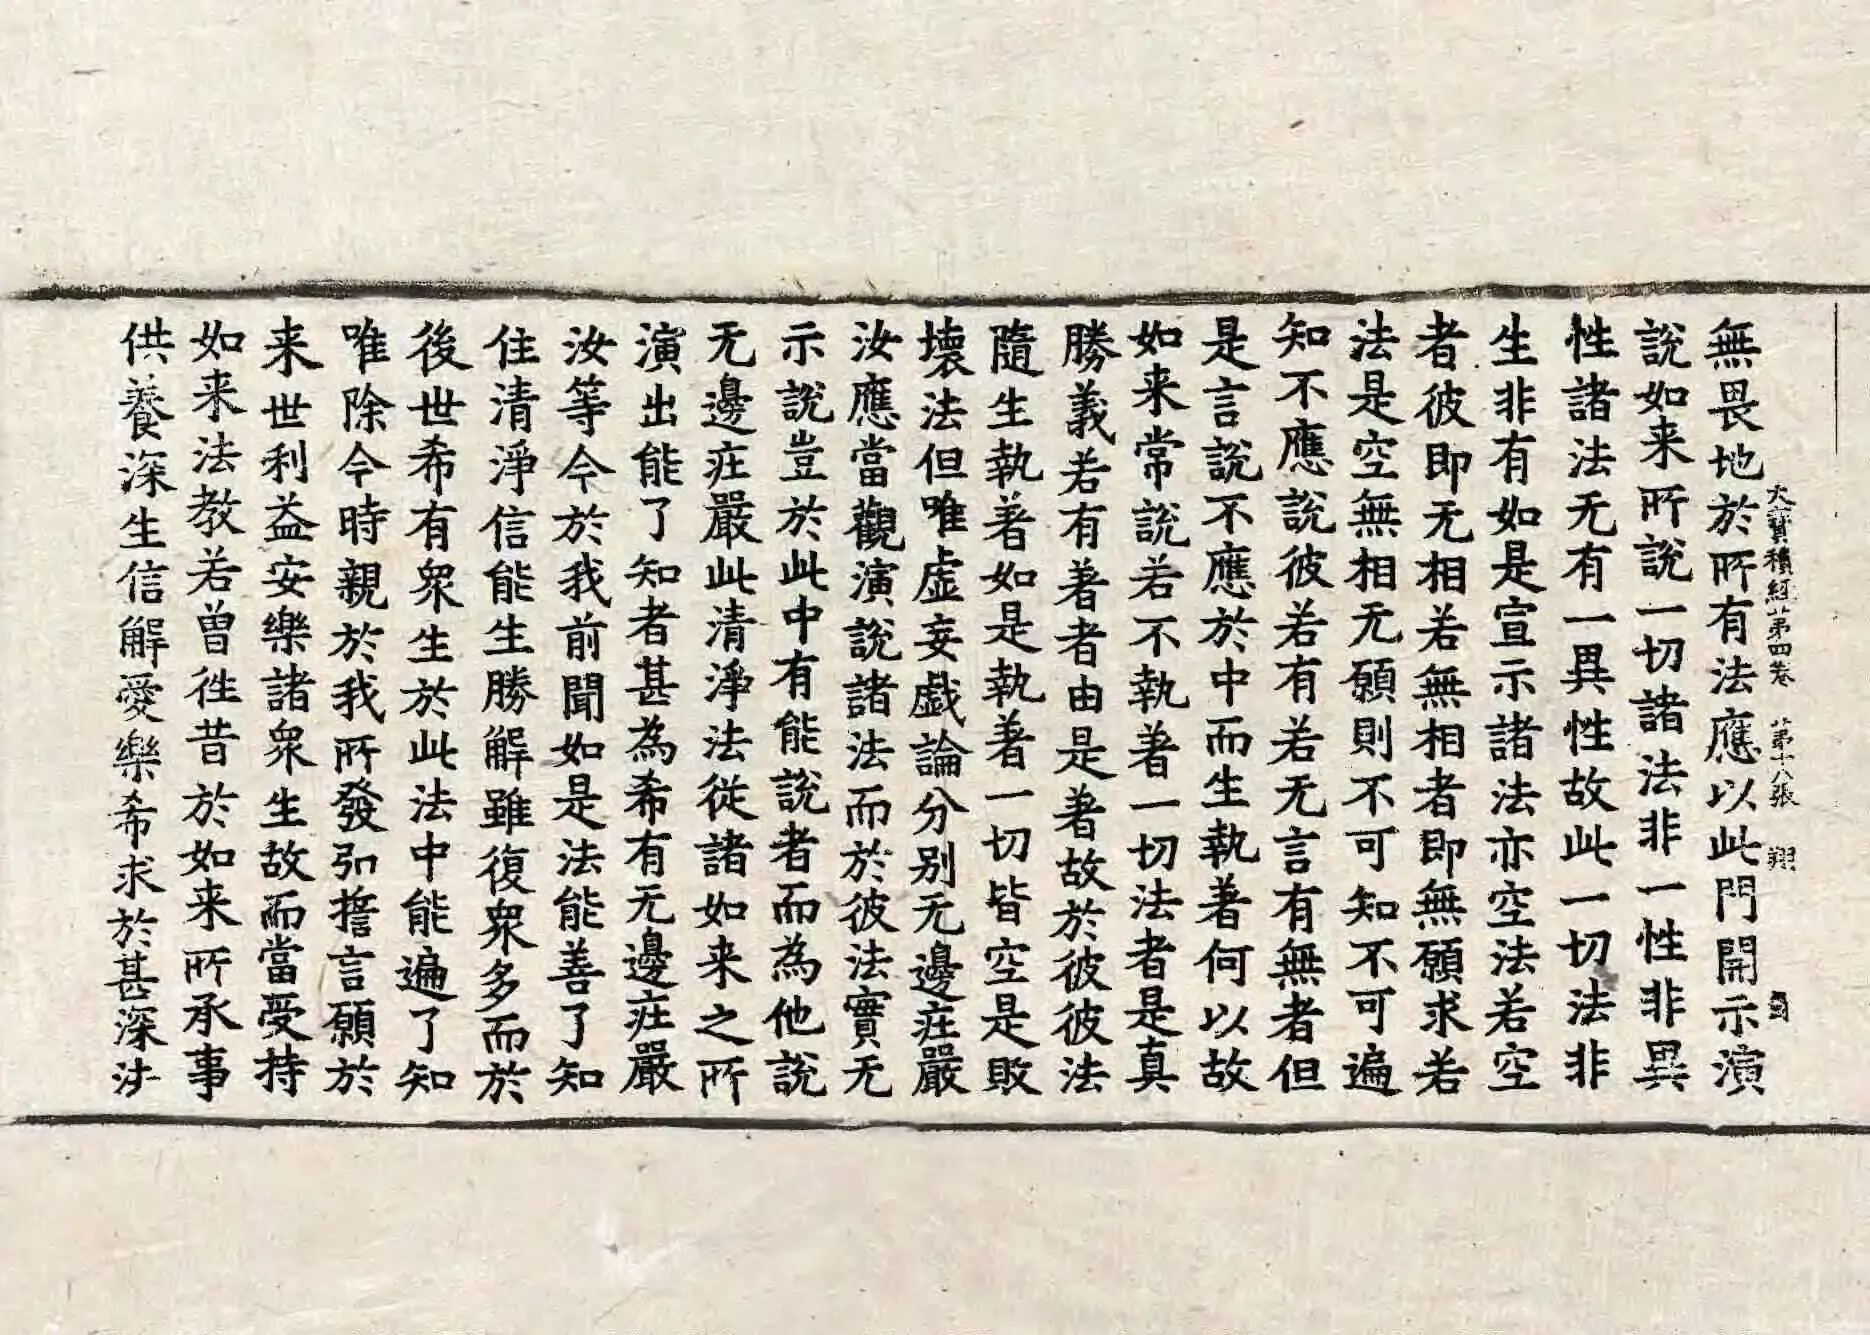 大寶積經第四卷 第十八張 翔
無畏地於所有法應以此門開示演
說如来所說一切諸法非一性非異
性諸法无有一異性故此一切法非
生非有如是宣示諸法亦空法若空
者彼即无相若無相者即無願求若
法是空無相无願則不可知不可遍
知不應說彼若有若无言有無者但
是言說不應於中而生執著何以故
如来常說若不執著一切法者是真
勝義若有著者由是著故於彼彼法
隨生執著如是執著一切皆空是敗
壞法但唯虛妄戲論分別无邊莊嚴
汝應當觀演說諸法而於彼法實无
示說豈於此中有能說者而為他說
无邊莊嚴此清淨法從諸如来之所
演出能了知者甚為希有无邊莊嚴
汝等今於我前聞如是法能善了知
住清淨信能生勝解雖復衆多而於
後世希有衆生於此法中能遍了知
唯除今時親於我所發弘擔言願於
来世利益安樂諸衆生故而當受持
如来法教若曾徃昔於如来所承事
供養深生信解愛樂希求於甚深法